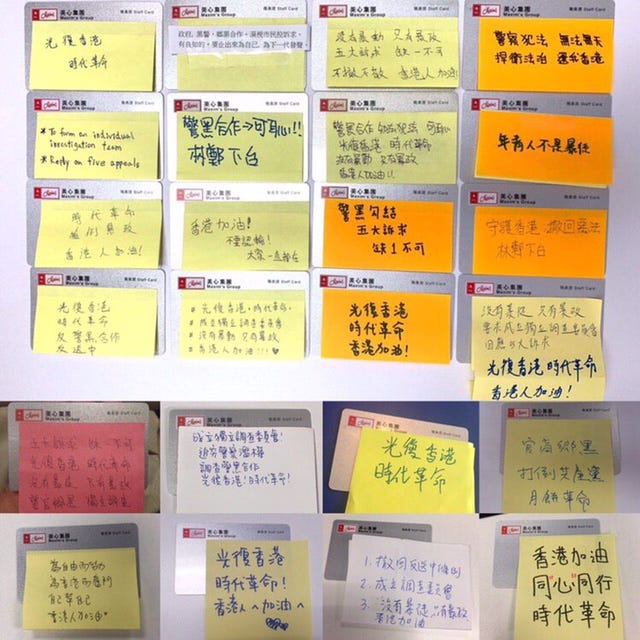 美心集團
Maxim's Group
職員證 Staff Card
光復香港
時代革命
美心集團
Maxim's Group
職員證 Staff Card
政府, 黑警, 鄉黑合作, 漠視市民拉訴求,
有良知的, 要企出來為自己, 為下一代發聲。
美心集團
Maxim's Group
職員證 Staff Card
沒有暴動 只有暴政
五大訴求 缺一不可
不撤不散 香港人加油!
美心集團
Maxim's Group
職員證 Staff Card
警察犯法 無法無天
捍衛法治 還我香港
美心集團
Maxim's Group
職員證 Staff Card
* To form an individual
investigation team
* Reply on five appeals
美心集團
Maxim's Group
職員證 Staff Card
警黑合作→可恥!!
林鄭下台
美心集團
Maxim's Group
職員證 Staff Card
警黑合作 知法犯法 可恥
光復香港 時代革命
沒有暴動 只有暴政
香港人加油!!
美心集團
Maxim's Group
職員證 Staff Card
年青人不是暴徒
美心集團
Maxim's Group
職員證 Staff Card
時代革命
推倒暴政
香港人加油!
美心集團
Maxim's Group
職員證 Staff Card
香港加油!
不要認輸!
大家一直都在
美心集團
Maxim's Group
職員證 Staff Card
警黑勾結
五大訴求
缺1不可
美心集團
Maxim's Group
職員證 Staff Card
守護香港 撤回惡法
林鄭下台
美心集團
Maxim's Group
職員證 Staff Card
光復香港
時代革命
反警黑合作
反送中
美心集團
Maxim's Group
職員證 Staff Card
# 光復香港,時代革命。
# 成立獨立調查委員會
# 沒有暴動 只有暴政
# 香港人加油!!!
美心集團
Maxim's Group
職員證 Staff Card
光復香港
時代革命
香港加油!
美心集團
Maxim's Group
職員證 Staff Card
沒有暴徒 只有暴政
要求成立獨立調查委員會
回應五大訴求
光復香港 時代革命
香港人加油!
美心集團
Maxim's Group
職員證 Staff Card
五大訴求 缺一不可
光復香港 時代革命
沒有暴徒 只有暴政
警官鄉黑 獨立調查
美心集團
Maxim's Group
職員證 Staff Card
成立獨立調查委員會!
追究警察濫權
調查警黑合作
光復香港!時代革命!
Staff Card
光復香港
時代革命
美心集團
Maxim's Group
Staff Card
官商鄉黑
打倒共產黨
月餅革命
美心集團
Maxim's Group
職員證 Staff Card
為自由而
為香港而
自己
香港人加油"
美心集團
Maxim's Group
職員證 Staff Card
光復香港
時代革命!
香港人^加油^
美心集團
Maxim's Group
職員證 Staff Card
1. 撤回反送中條例
2. 成立調查委員會
3. "沒有暴徒,只有暴政
香港加油
美心集團
Maxim's Group
職員證 Staff Card
香港加油
同心同行
時代革命